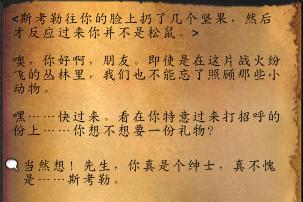 <斯考勒往你的脸上扔了几个坚果，然后
才反应过来你并不是松鼠。>
噢，你好啊，朋友。即使是在这片战火纷
飞的丛林里，我们也不能忘了照顾那些小
动物。
嘿……快过来。看在你特意过来打招呼的
份上……你想不想要一份礼物？
当然想！先生，你真是个绅士，真不愧
是……斯考勒。